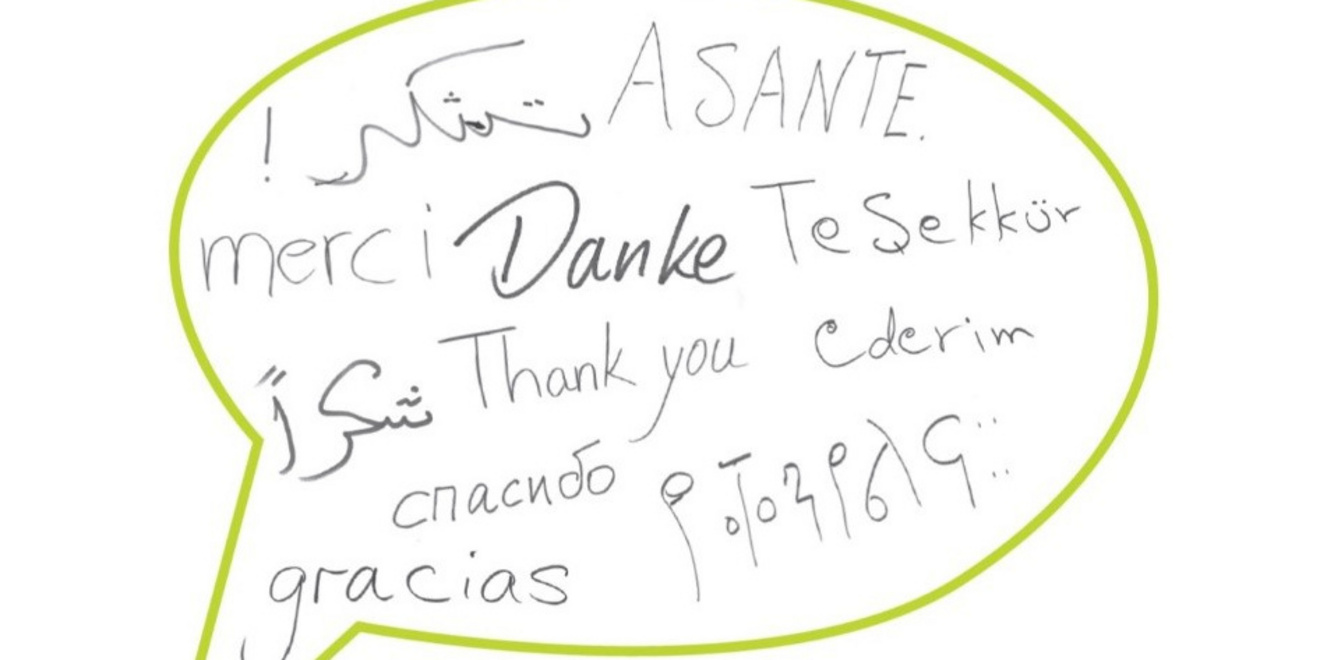 تشكر ! ASANTE.
merci Danke Teşekkür
شكراً Thank you ederim
спасибо የቐንየለይ።
gracias